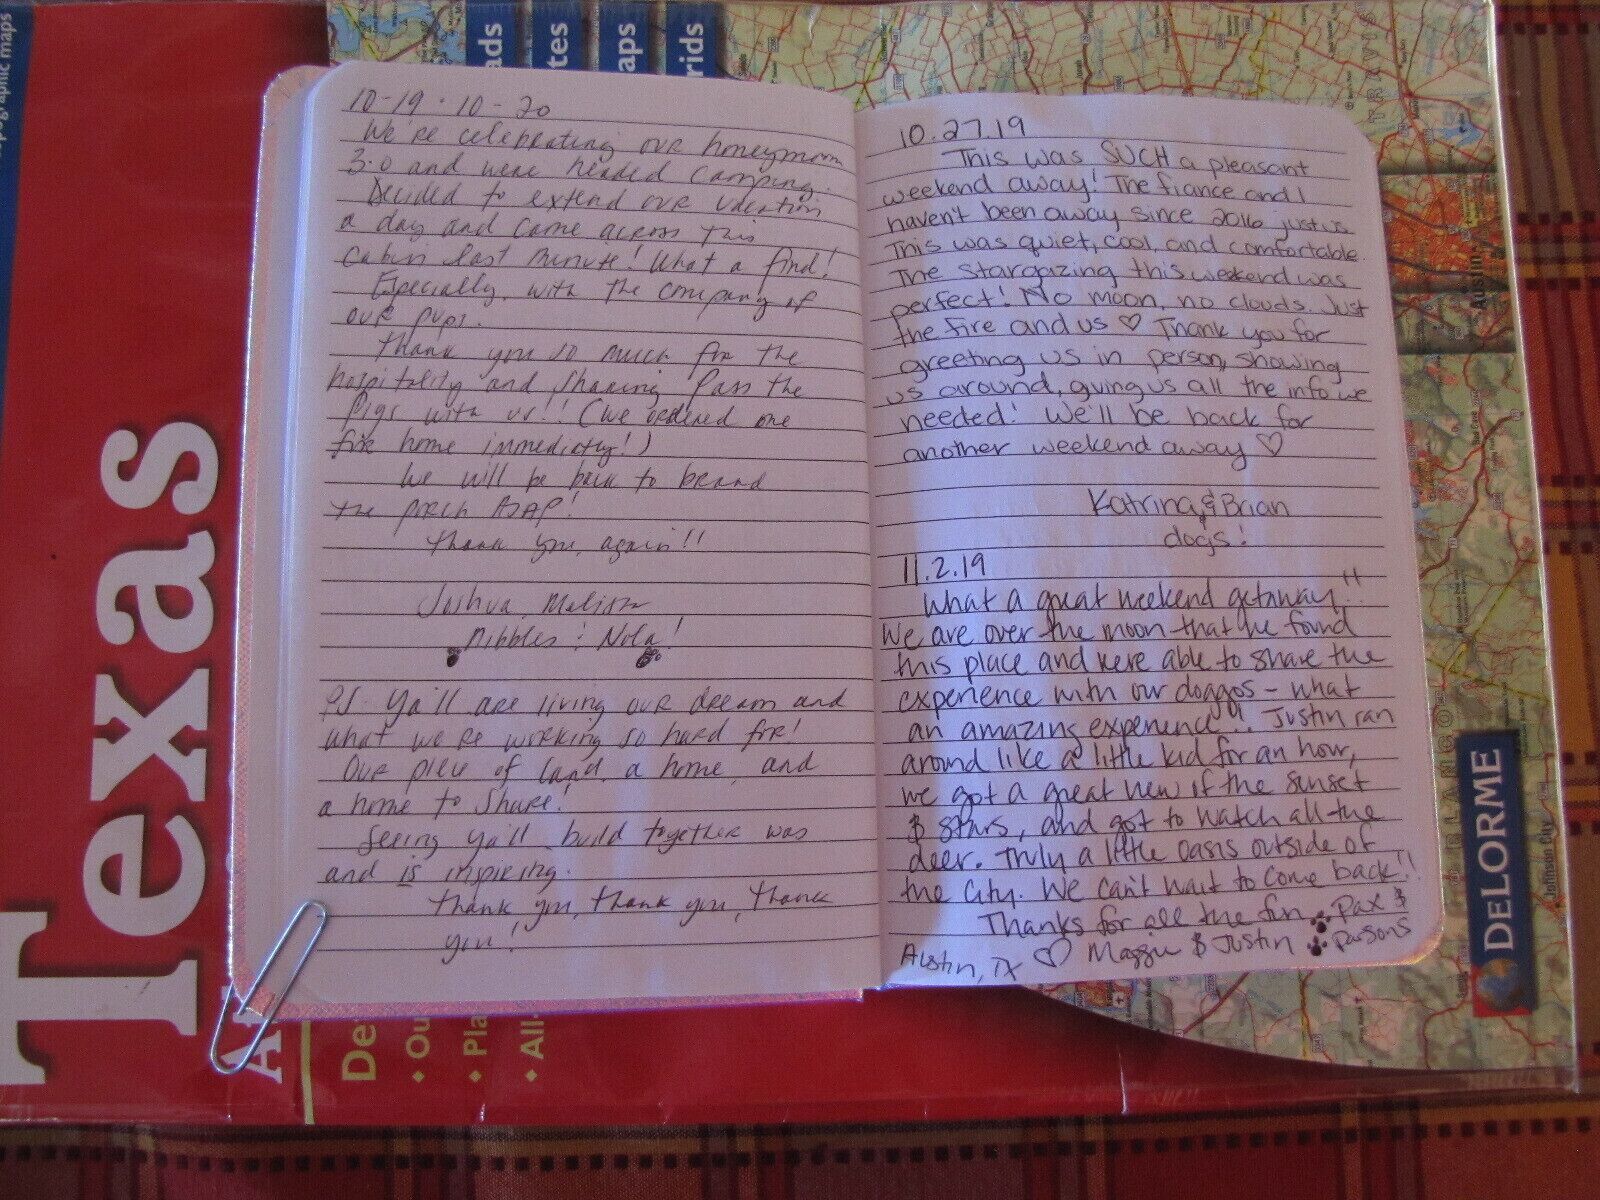 10-19 · 10-20
We're celebrating our honeymoon
3.0 and were headed camping.
Decided to extend our vacation
a day and came across this
cabin last minute! What a find!
Especially with the company of
our pups.
Thank you so much for the
hospitality and sharing Pass the
Pigs with us!! (we ordered one
for home immediatly!)
We will be back to
the porch ASAP!
Thank you, again!!
Joshua, Melissa
Nibbles & Nola!
PS. Ya'll are living our dream and
what we're working so hard for!
Our piece of land, a home, and
a home to share!
Seeing ya'll build together was
and is inspiring.
Thank you, thank you, thank
you!
10.27.19
This was SUCH a pleasant
weekend away! The fiance and I
haven't been away since 2016 just us.
This was quiet, cool, and comfortable.
The stargazing this weekend was
perfect! No moon, no clouds. Just
the fire and us ♡ Thank you for
greeting us in person, showing
us around, giving us all the info we
needed! We'll be back for
another weekend away ♡
Katrina & Brian
& dogs!
11.2.19
What a great weekend getaway!!
We are over the moon that we found
this place and were able to share the
experience with our doggos - what
an amazing experience!! Justin ran
around like a little kid for an hour,
we got a great view of the sunset
& stars, and got to watch all the
deer. Truly a little oasis outside of
the city. We can't wait to come back!!
Thanks for all the fun
Pax &
Parsons
Austin, TX ♡ Maggie & Justin
Texas
DELORME
ographic maps
ads
tes
aps
rids
De
• Ou
• Pla
• All-
TRAVIS
AUSTIN
BLANCO
Johnson City